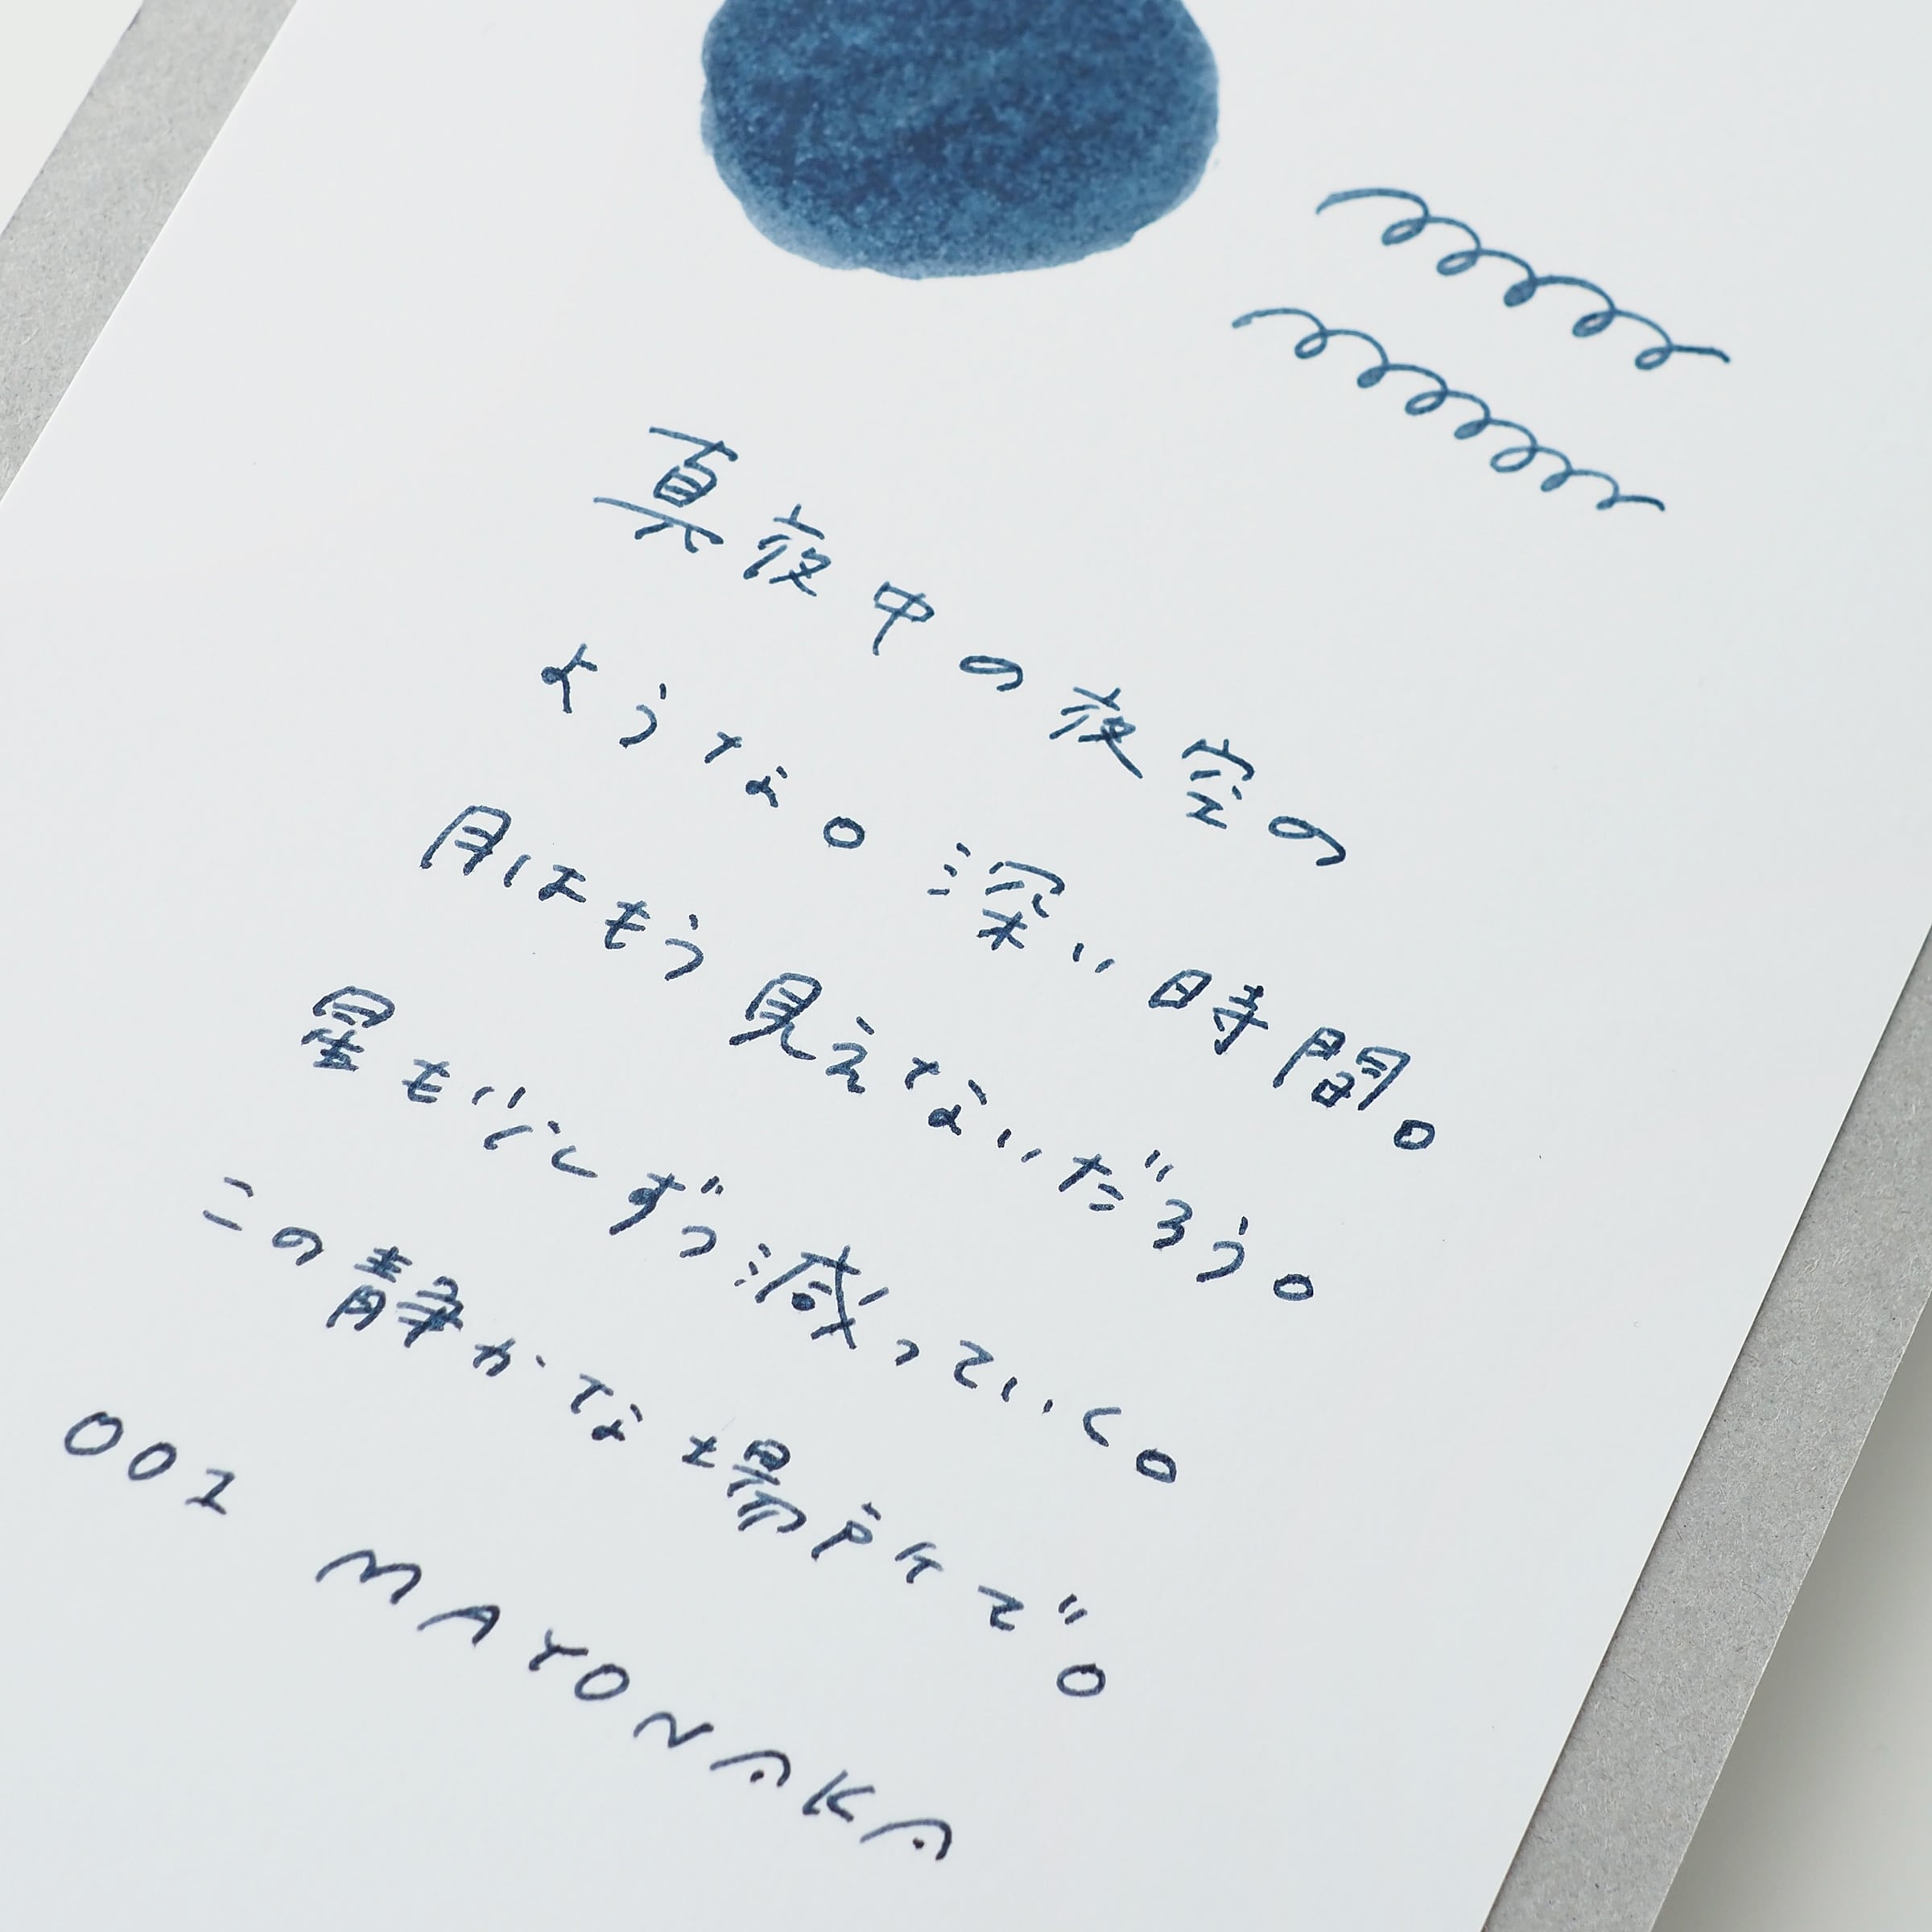 真夜中の夜空の
ような。深い時間。
月はもう見えないだろう。
星も少しずつ減っていく。
この静かな場所で。
001 MAYONAKA